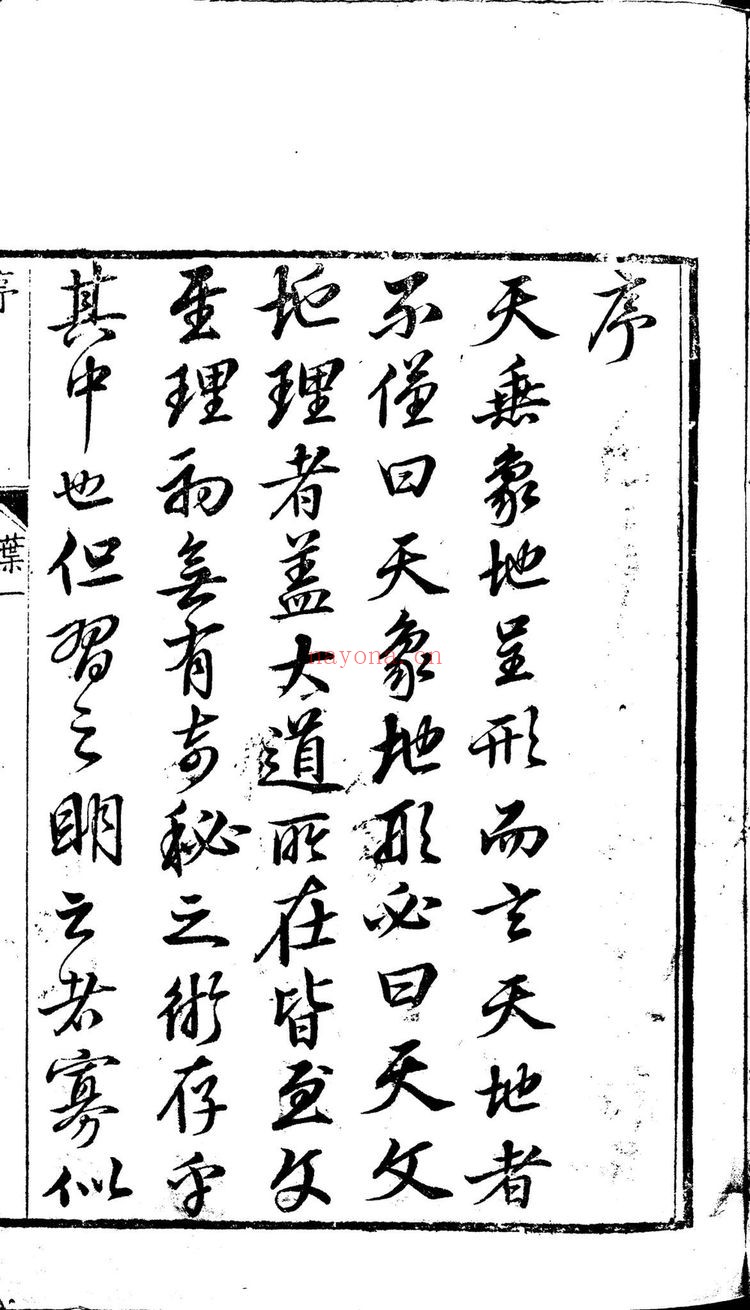 序
天垂象地呈形而言天地者
不僅曰天象地形必曰天文
地理者蓋大道所在皆至文
至理初無有奇秘之術存乎
其中也但習之明之者寡似
序
葉一
nayona.cn